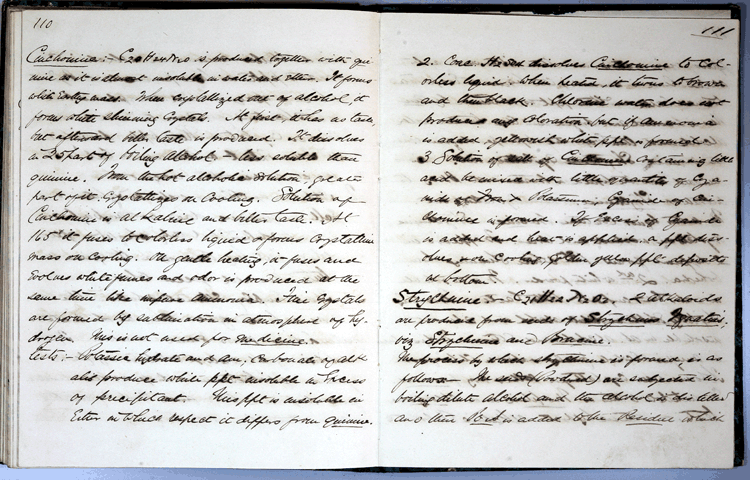 110
Cinchonine :- C20 H24 N2 O is produced together with qui
nine as it is almost insoluble in water and Ether. It forms
white Earthy mass. When crystallized out of alcohol it
forms white shinning Crystals. At first it has no taste,
but afterward bitter taste is produced. It dissolves
in 20 part of boiling Alcohol — less soluble than
quinine. From the hot alcoholic solution greater
part of it Crystallizes on Cooling. Solution of
Cinchonine is alkaline and bitter taste. At
165° it fuses to colorless liquid & forms Crystalline
mass on Cooling. On gentle heating it fuses and
Evolves white fumes and odor is produced at the
same time like ammonia. Fine Crystals
are formed by sublimation in atmosphere of hy
drogen. This is not used for medicine.
Tests :- Potassa hydrate and am. Carbonate of alk
alis produce white ppt insoluble in Excess
of precipitant. This ppt is insoluble in
Ether in which respect it differs from quinine.
111
2. Conc. dissolves Cinchonine to Col-
orless liquid. When heated, it turns to brown
and then black. Chlorine water does not
produce any coloration but if ammonia
is added yellowish white ppt is formed.
3 Solution of salt of Cinchonine containing little
acid be mixed with little quantities of Cya
nide of Platinum, Cyanide of Cin
chonidee is formed. If Excess of Cyanide
is added and heat is applied, a ppt diss
olves & on Cooling golden yellow ppt deposits
at bottom.
Strychnine :- 2 alkaloids
are produce from seeds of Strychnos
viz. Strychnine and Brucine.
The process by which strychnine is formed, is as
follows — The seeds are subjected in
boiling dilute alcohol and the alcohol is distilled
and then is added to the Residue which